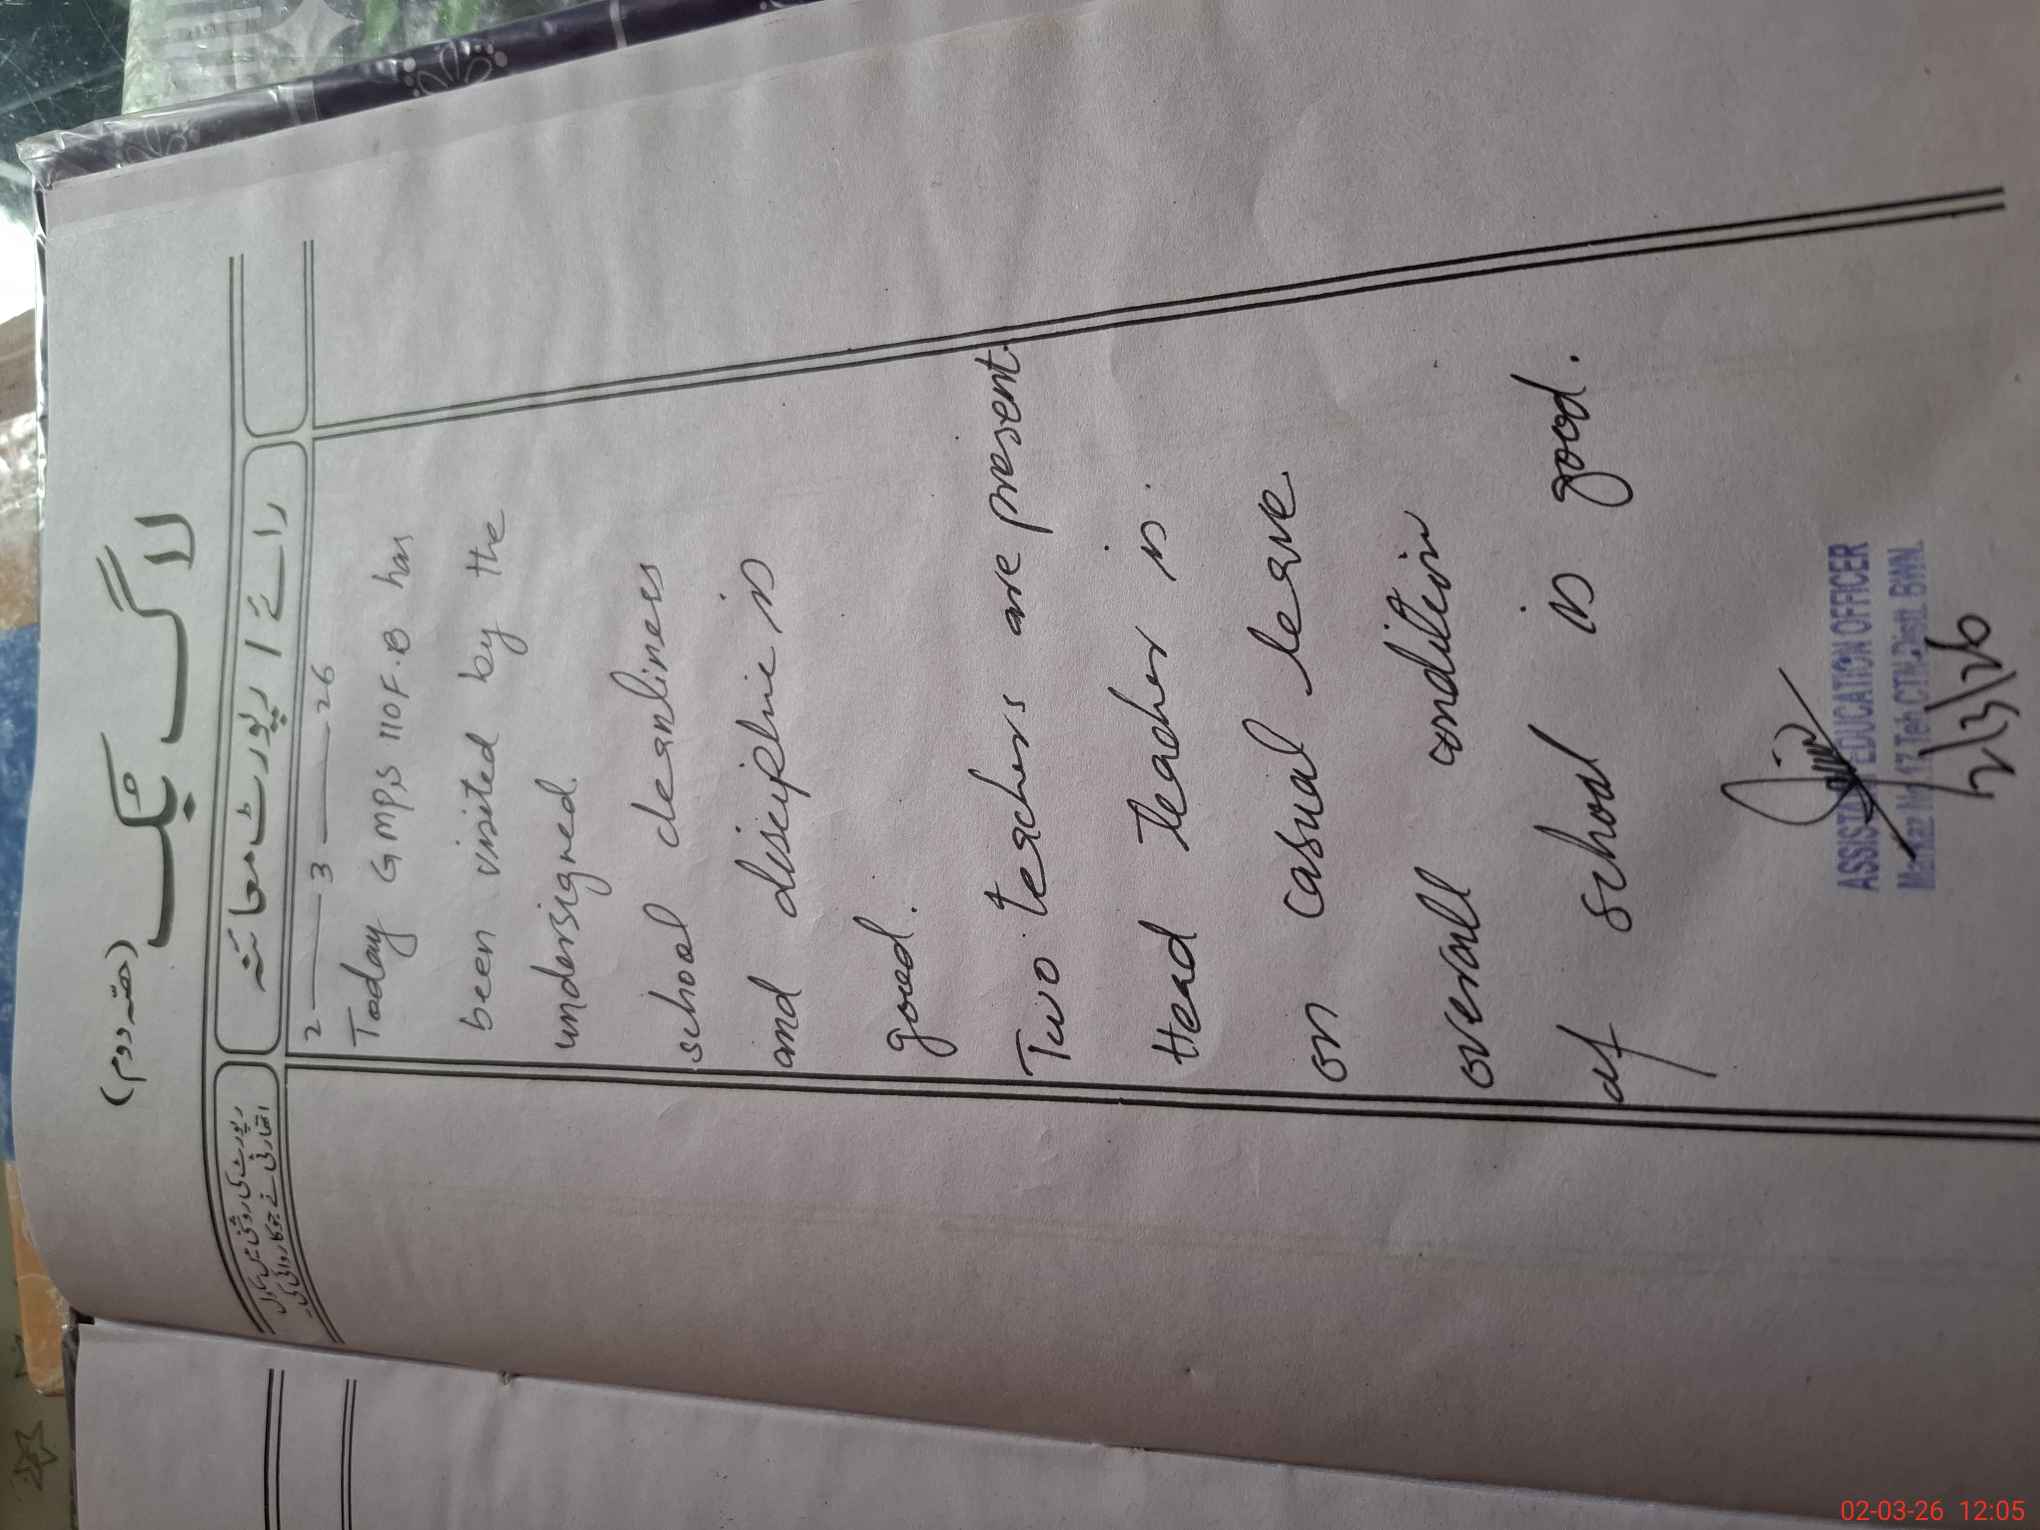 (حصہ دوم)
لاگ بک
رپورٹ کی روشنی میں عمل
اتھارٹی نے جو کاروائی کی۔
رائے / رپورٹ معائنہ
2 — 3 — 26
Today GMPS 110F.B has
been visited by the
undersigned.
school cleanliness
and discipline is
good.
Two teachers are present.
Head teacher is.
on casual leave
overall condition
of school is good.
ASSISTANT EDUCATION OFFICER
Markaz No 17 Teh CTN.Distt. BWN.
2/3/26
02-03-26 12:05